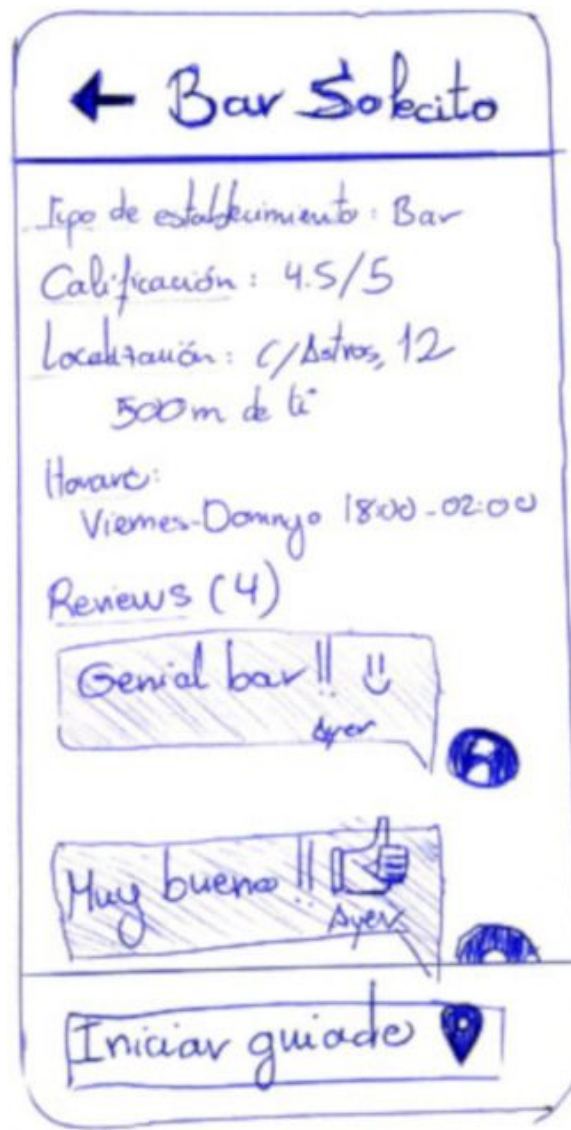 Bar Solecito
Tipo de establecimiento: Bar
Calificación: 4.5/5
Localización: C/Astros, 12
500m de ti
Horario:
Viernes-Domingo 18:00-02:00
Reviews (4)
Genial bar!!
Ayer
Muy bueno!!
Ayer
Iniciar guiado